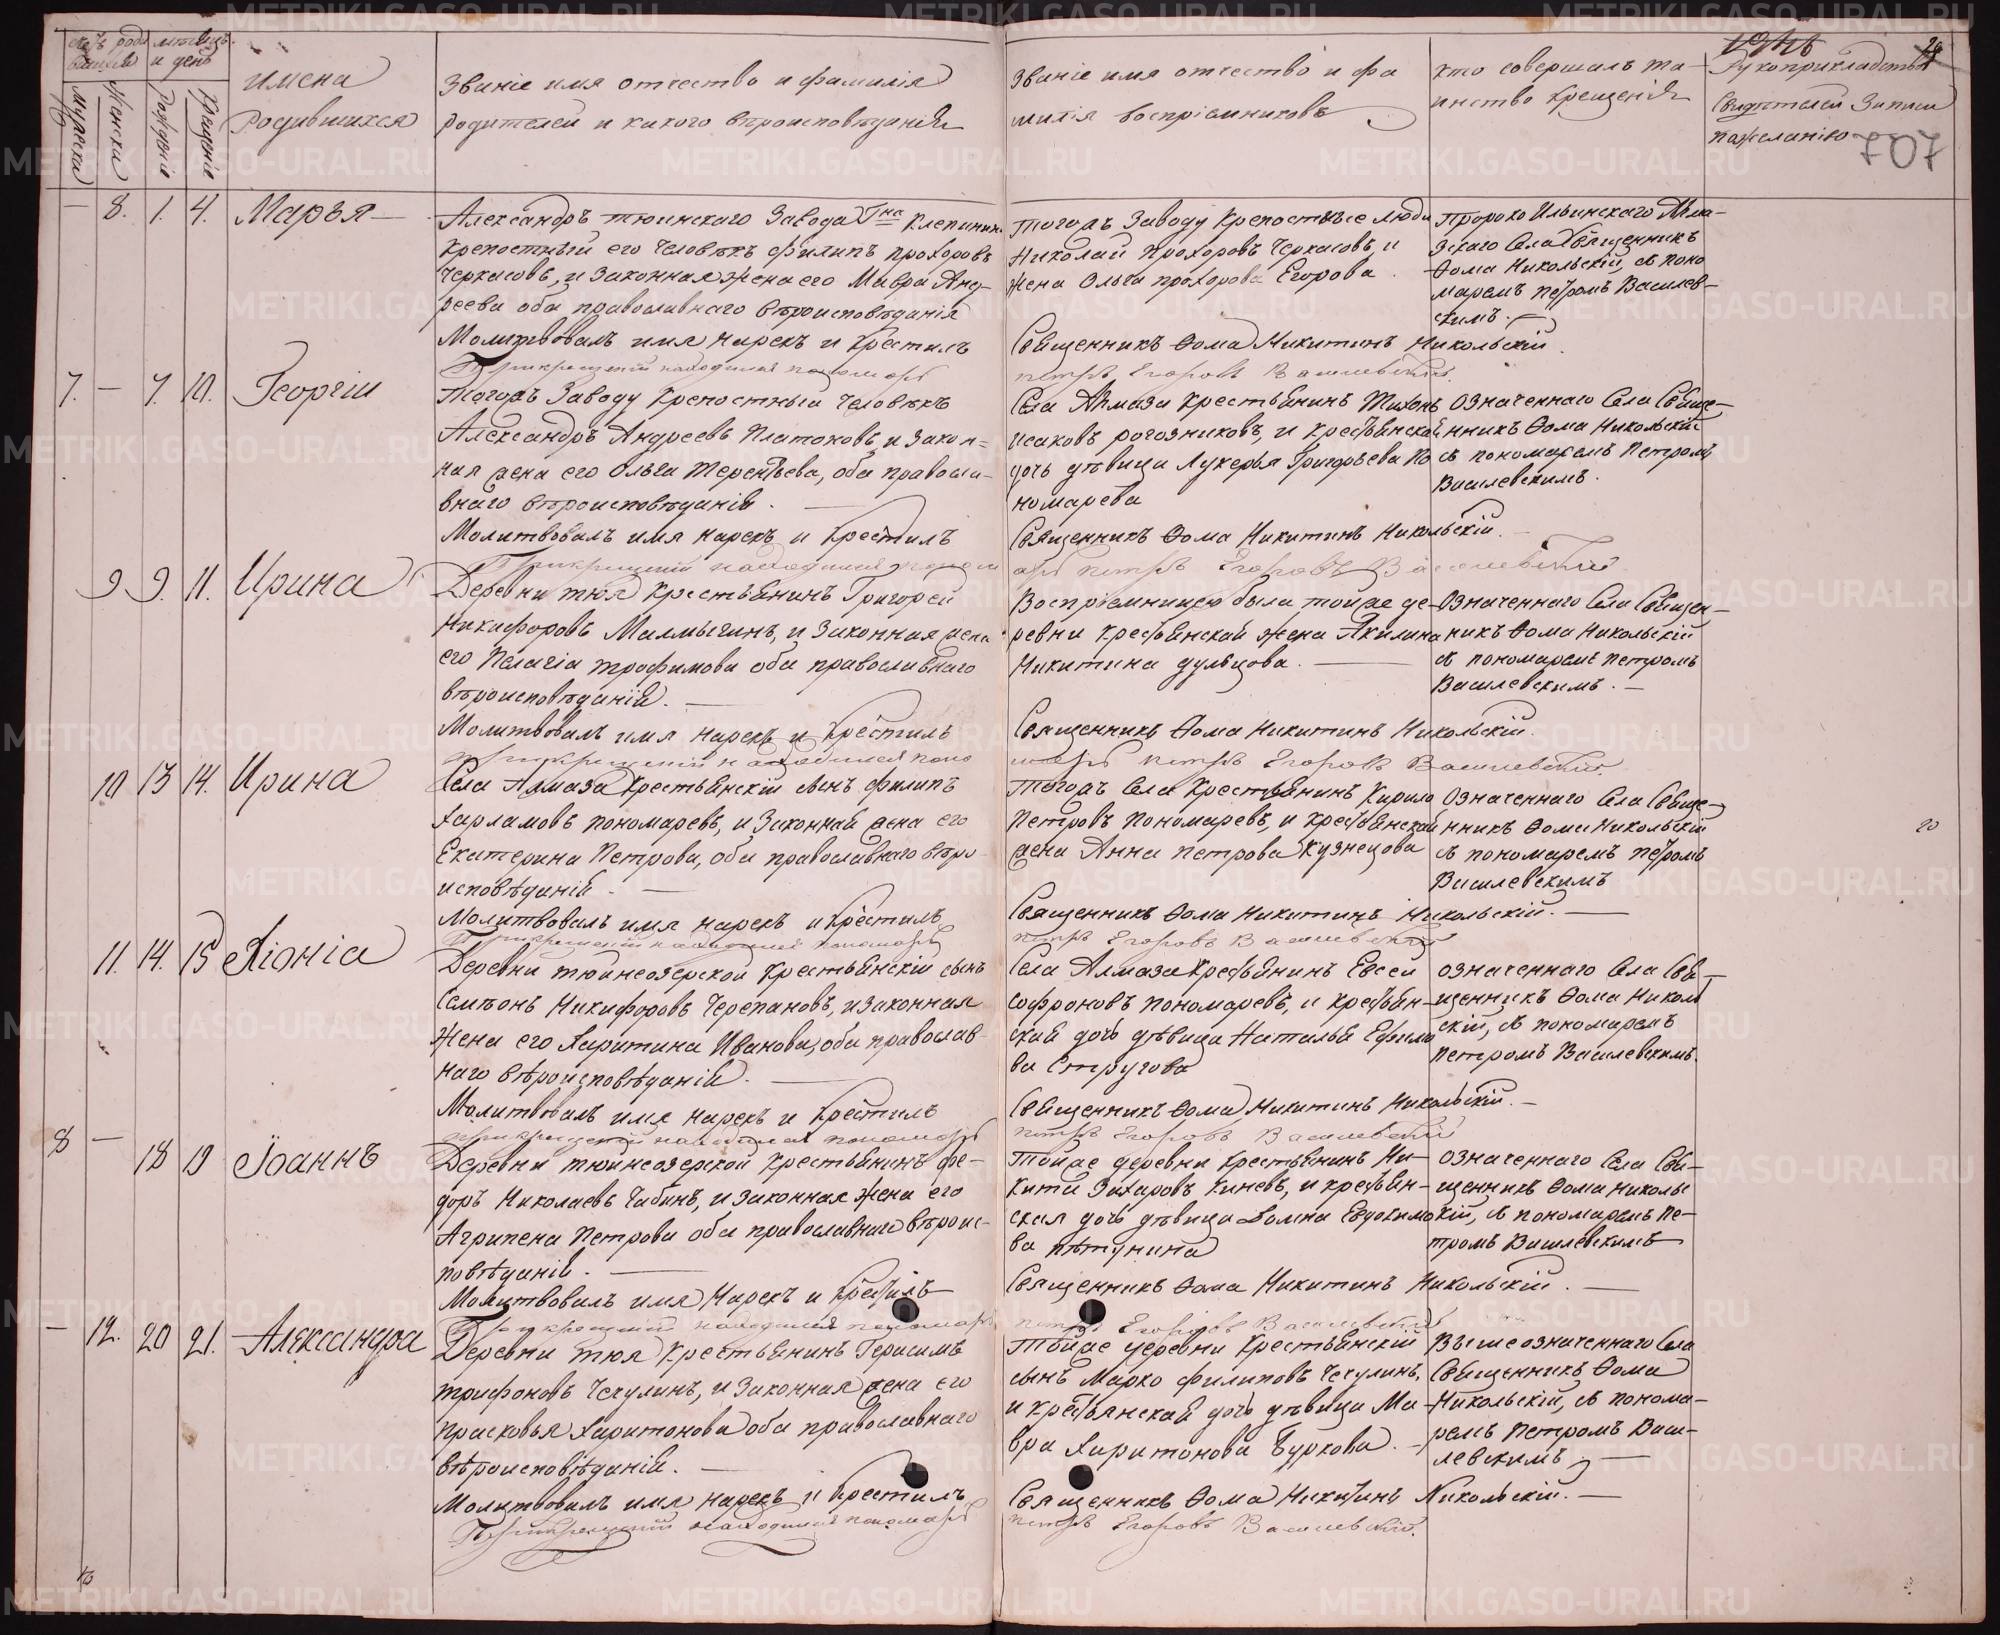 METRIKI.GASO-URAL.RU
имена
Родившихся
Мужеска
Женска
Рождение
Крещение
Званіе имя отчество и фамилія
родителей и какого вѣроисповѣданія
Званіе имя отчество и фа
милія воспріемниковъ
кто совершалъ та-
инство крещенія
Рукоприкладство
Свидетелей записи
пожеланію
707
8. 1. 4. Марья
Александръ тюинскаго Завода
крепостный его человѣкъ филипъ прохоровъ
Черкасовъ, и Законная жена его Мавра Анд-
реева оба православнаго вѣроисповѣданія
Молитвовалъ имя нарекъ и крестилъ
Прикрещеніи находился пономарь
тогожъ Заводу крепостные люди
Николай прохоровъ Черкасовъ, и
жена Ольга прохорова Егорова.
Священникъ Ѳома Никитинъ Никольскій.
петръ Егоровъ Василевскій.
пророко Ильинскаго Алма-
зскаго Села Священникъ
Ѳома Никольскій, съ поно
маремъ петромъ Василев-
скимъ.
7. – 7. 10. Георгіи
Тогожъ Заводу крепостный человѣкъ
Александръ Андреевъ Платоновъ, и Закон-
ная жена его Ольга Терентьева, оба правосла-
внаго вѣроисповѣданія.
Молитвовалъ имя нарекъ и крестилъ
Села Алмаза крестьянинъ Тихонъ
Исаковъ рогозниковъ, и крестьянская
дочь дѣвица Лукерья Григорьева По
номарева
Священникъ Ѳома Никитинъ Никольскій.
петръ Егоровъ Василевскій
Означеннаго Села Свяще-
нникъ Ѳома Никольскій
съ пономаремъ Петромъ
Василевскимъ.
9 9. 11. Ирина
Деревни тюя крестьянинъ Григорей
Никифоровъ Малмыгинъ, и Законная жена
его Пелагія трофимова оба православнаго
вѣроисповѣданія.
Молитвовалъ имя нарекъ и крестилъ
Воспріемницею была тойже де-
ревни крестьянская жена Акилина
Никитина дульцова.
Священникъ Ѳома Никитинъ Никольскій.
петръ Егоровъ Василевскій.
Означеннаго Села Священ-
никъ Ѳома Никольскій
съ пономаремъ петромъ
Василевскимъ.
10 13 14. Ирина
Села Алмаза Крестьянскій сынъ филипъ
Харламовъ пономаревъ, и Законная жена его
Екатерина Петрова, оба православнаго вѣро-
исповѣданія.
Молитвовалъ имя нарекъ и крестилъ
Прикрещеніи находился пономарь
тогожъ Села Крестьянинъ Кирило
Петровъ пономаревъ, и крестьянская
жена Анна петрова Кузнецова
Священникъ Ѳома Никитинъ Никольскій.
петръ Егоровъ Василевскій
Означеннаго Села Свяще-
нникъ Ѳома Никольскій
съ пономаремъ петромъ
Василевскимъ
20
11. 14. 15 Хіонія
Деревни тюинсозерской крестьянскій сынъ
Семѣонъ Никифоровъ Черепановъ, и законная
жена его Харитина Иванова, оба православ-
наго вѣроисповѣданія.
Молитвовалъ имя нарекъ и крестилъ
прикрещеніи находился пономарь
Села Алмаза крестьянинъ Евсеи
софроновъ пономаревъ, и крестьян-
ская дочь дѣвица Наталья Ефимо
ва Стругова
Священникъ Ѳома Никитинъ Никольскій.
петръ Егоровъ Василевскій
означеннаго Села Свя-
щенникъ Ѳома Николь
скій, съ пономаремъ
петромъ Василевскимъ.
8 – 18 19 Іоаннъ
Деревни тюинсозерской крестьянинъ фе-
доръ Николаевъ Чабинъ, и законная жена его
Агрипена Петрова оба православнаго вѣроис-
повѣданія.
Молитвовалъ имя Нарекъ и крестилъ
Прикрещеніи находился пономарь
тойже деревни крестьянинъ Ни-
кита Захаровъ Киневъ, и крестьян-
ская дочь дѣвица Домна Евдокимо
ва пѣтунина
Священникъ Ѳома Никитинъ Никольскій.
петръ Егоровъ Василевскій
означеннаго Села Свя-
щенникъ Ѳома Никольс
кій, съ пономаремъ Пе-
тромъ Василевскимъ
– 12. 20 21. Александра
Деревни тюя крестьянинъ Герасимъ
трифоновъ Чекулинъ, и Законная жена его
прасковья Харитонова оба православнаго
вѣроисповѣданія.
Молитвовалъ имя нарекъ и крестилъ
Прикрещеніи находился пономарь
тойже деревни Крестьянскій
сынъ Марко филиповъ Чекулинъ,
и крестьянская дочь дѣвица Ма-
вра Харитонова Буркова.
Священникъ Ѳома Никитинъ Никольскій.
петръ Егоровъ Василевскій.
Вышеозначеннаго Села
Священникъ Ѳома
Никольскій, съ понома-
ремъ петромъ Васи-
левскимъ